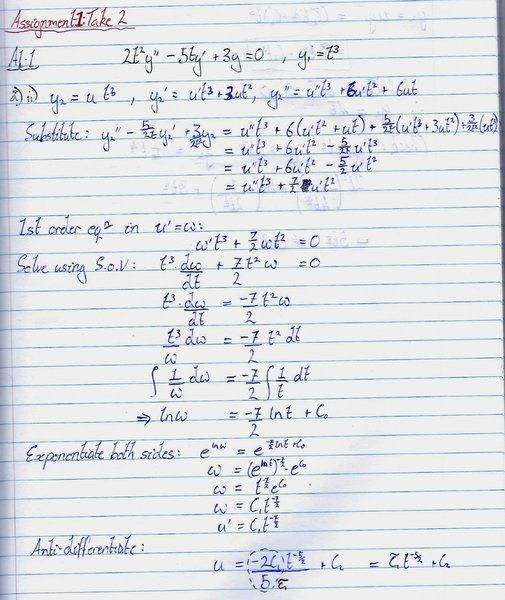 Assignment 1: Take 2
A1:1 2t²y" - 5ty' + 3y = 0 , y₁ = t³
a) ii) y₂ = u t³ , y₂' = u't³ + 3ut², y₂" = u"t³ + 6u't² + 6ut
Substitute: y₂" - 5/2t y₂' + 3/2t² y₂ = u"t³ + 6(u't² + ut) + 5/2t (u't³ + 3ut²) + 3/2t² (ut³)
= u"t³ + 6u't² - 5/2t u't³
= u"t³ + 6u't² - 5/2 u't²
= u"t³ + 7/2 u't²
1st order eqⁿ in u' = ω:
ω't³ + 7/2 ωt² = 0
Solve using S.O.V: t³ · dω/dt + 7/2 t² ω = 0
t³ · dω/dt = -7/2 t² ω
t³/ω dω = -7/2 t² dt
∫ 1/ω dω = -7/2 ∫ 1/t dt
⇒ lnω = -7/2 ln t + C₀
Exponentiate both sides: e^lnω = e^(-7/2 ln t + C₀)
ω = (e^(ln t))^(-7/2) · e^C₀
ω = t^(-7/2) e^C₀
ω = C₁t^(-7/2)
u' = C₁t^(-7/2)
Anti-differentiate:
u = (-2C₁)/5 t^(-5/2) + C₂ = c̄₁t^(-5/2) + C₂
c̄₁